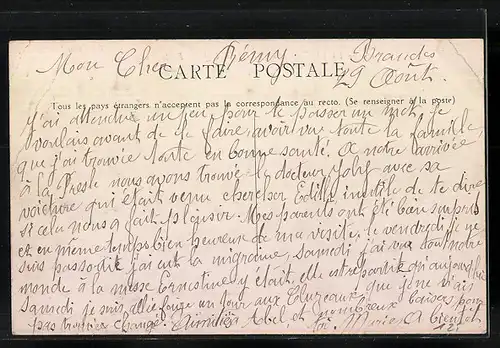 Mon Cher Rémy. Brandes
CARTE POSTALE 29 Août.
Tous les pays étrangers n'acceptent pas la correspondance au recto. (Se renseigner à la poste)
J'ai attendu un peu pour te passer un mot, je
voulais avant de te faire, avoir vue toute la famille,
que j'ai trouvée toute en bonne santé. A notre arrivée
à la Presle nous avons trouvé le docteur Joly avec sa
voiture qui était venu chercher Edith, inutile de te dire
si cela nous a fait plaisir. Mes parents ont été bien surpris
et en même temps bien heureux de ma visite. le vendredi je ne
suis pas sortie j'ai eut la migraine, samedi j'ai vu tout notre
monde à la messe Ernestine y était, elle est repartie qu'aujourd'hui
samedi je suis allée faire un tour aux que je ne vais
pas trouvé changé. Abel, et nombreux baisers pour
toi Marie A bientôt